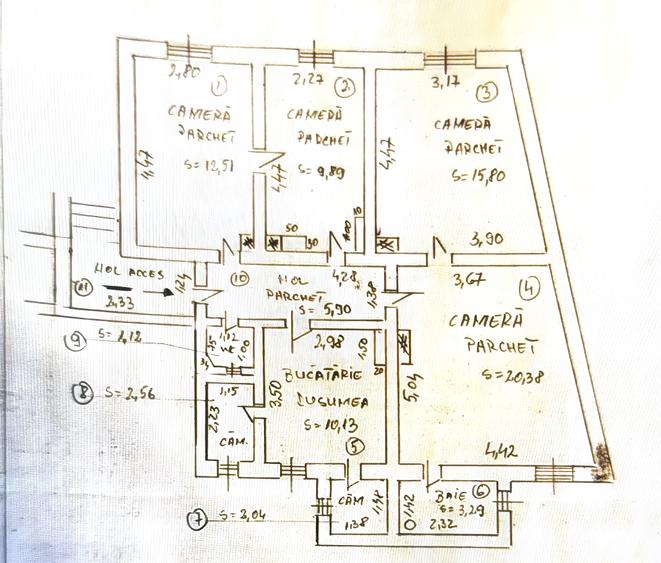 2,80
1
CAMERĂ
PARCHET
S=12,51
4,47
2,27
2
CAMERĂ
PARCHET
S=9,89
4,47
50
30
3,17
3
CAMERĂ
PARCHET
S=15,80
4,47
3,90
HOL ACCES
11
2,33
1,24
10
HOL
PARCHET
S=5,90
4,28
1,38
3,67
4
CAMERĂ
PARCHET
S=20,38
5,04
4,42
9
S=1,12
1,12
WC
1,00
8
S=2,56
1,15
2,23
CĂM.
2,98
1,50
20
BUCĂTĂRIE
DUSUMEA
S=10,13
3,50
5
7
S=2,04
CĂM
1,48
1,38
BAIE
6
S=3,29
1,42
2,32